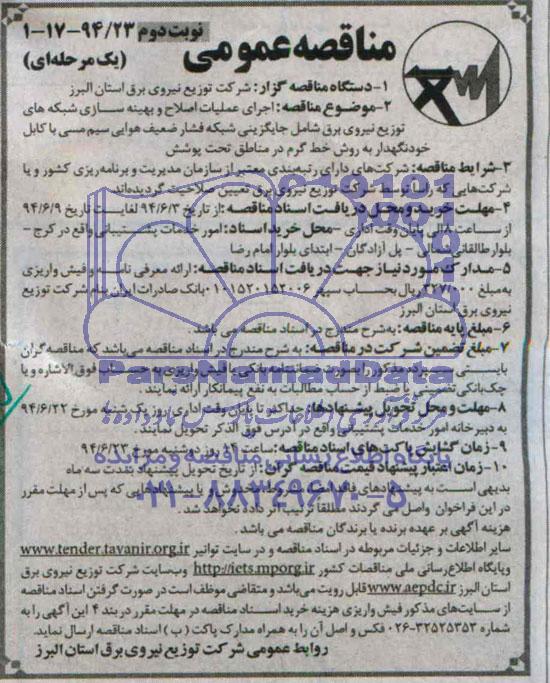 نوبت دوم ۹۴/۲۳-۱۷-۱
مناقصه عمومی
(یک مرحله‌ای)
۱-دستگاه مناقصه گزار: شرکت توزیع نیروی برق استان البرز
۲-موضوع مناقصه: اجرای عملیات اصلاح و بهینه سازی شبکه های
توزیع نیروی برق شامل جایگزینی شبکه فشار ضعیف هوایی سیم مسی با کابل
خودنگهدار به روش خط گرم در مناطق تحت پوشش
۳-شرایط مناقصه: شرکت‌های دارای رتبه‌بندی معتبر از سازمان مدیریت و برنامه‌ریزی کشور و یا
شرکت‌هایی که راسا توسط شرکت توزیع نیروی برق تعیین صلاحیت گردیده‌اند
۴-مهلت خرید و محل دریافت اسناد مناقصه: از تاریخ ۹۴/۶/۳ لغایت تاریخ ۹۴/۶/۹
از ساعت ۸ الی پایان وقت اداری - محل خرید اسناد: امور خدمات پشتیبانی واقع در کرج -
بلوار طالقانی شمالی - پل آزادگان - ابتدای بلوار امام رضا
۵-مدارک مورد نیاز جهت دریافت اسناد مناقصه: ارائه معرفی نامه و فیش واریزی
به مبلغ ۳۲۷/۰۰۰ ریال بحساب سپهر ۰۱۰۱۵۲۰۱۵۲۰۰۶ بانک صادرات ایران بنام شرکت توزیع
نیروی برق استان البرز
۶-مبلغ پایه مناقصه: به‌شرح مندرج در اسناد مناقصه می باشد.
۷-مبلغ تضمین شرکت در مناقصه: به شرح مندرج در اسناد مناقصه می‌باشد که مناقصه‌گران
بایستی سپرده مذکور را بصورت ضمانتنامه بانکی یا فیش واریزی به حساب فوق‌الاشاره و یا
چک بانکی تضمینی یا ضبط از حساب مطالبات به نفع پیمانکار ارائه نمایند.
۸-مهلت و محل تحویل پیشنهادها: حداکثر تا پایان وقت اداری روز یک شنبه مورخ ۹۴/۶/۲۲
به دبیرخانه امور خدمات پشتیبانی واقع در آدرس فوق الذکر تحویل نمایند.
۹-زمان گشایش پاکت های اسناد مناقصه: ساعت ۱۴ روز دوشنبه مورخ ۹۴/۶/۲۳
۱۰-زمان اعتبار پیشنهاد قیمت مناقصه گران: از تاریخ تحویل پیشنهاد بمدت سه ماه
بدیهی است به پیشنهادهای فاقد امضاء، مشروط، مخدوش و یا پیشنهادهایی که پس از مهلت مقرر
در این فراخوان واصل می گردند مطلقا ترتیب اثر داده نخواهد شد.
هزینه آگهی بر عهده برنده یا برندگان مناقصه می باشد.
سایر اطلاعات و جزئیات مربوطه در اسناد مناقصه و در سایت توانیر www.tender.tavanir.org.ir
و پایگاه اطلاع‌رسانی ملی مناقصات کشور http://iets.mporg.ir وب‌سایت شرکت توزیع نیروی برق
استان البرز www.aepdc.ir قابل رویت می‌باشد و متقاضی موظف است در صورت گرفتن اسناد مناقصه
از سایت‌های مذکور فیش واریزی هزینه خرید اسناد مناقصه در مهلت مقرر در بند ۴ این آگهی را به
شماره ۳۲۵۲۵۳۵۳-۰۲۶ فکس و اصل آن را به همراه مدارک پاکت (ب) اسناد مناقصه ارسال نماید.
روابط عمومی شرکت توزیع نیروی برق استان البرز
ParsNamadData
پایگاه اطلاع رسانی مناقصه و مزایده
۰۲۱-۸۸۳۴۹۶۷۰-۵